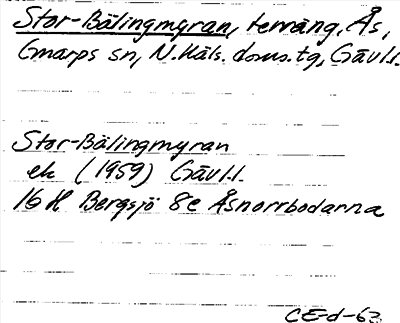 Stor-Bälingmyran, terräng, Ås,
Gnarps sn, N. Häls. doms.tg, Gävl.l.
Stor-Bälingmyran
ek (1959) Gävl.l.
16 H Bergsjö 8e Åsnorrbodarna
CE-d-63